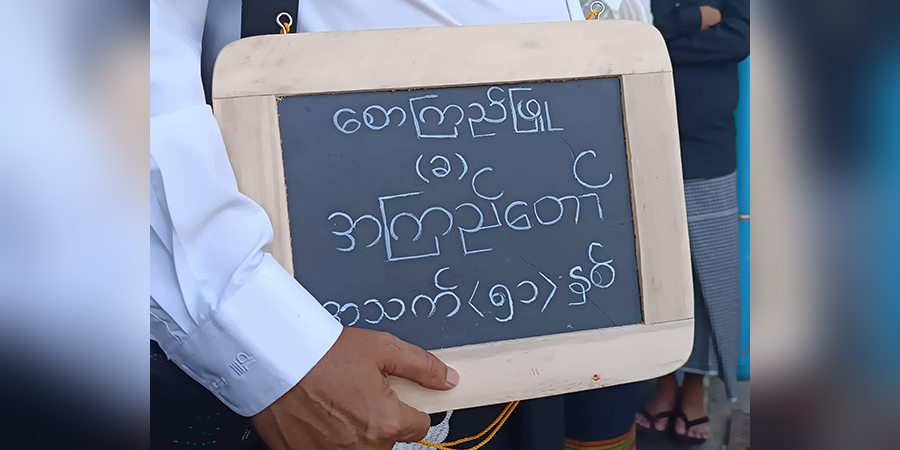 စောကြည်ဖြူ
(ခ)
အကြည်တော်
အသက်<၅၁>နှစ်